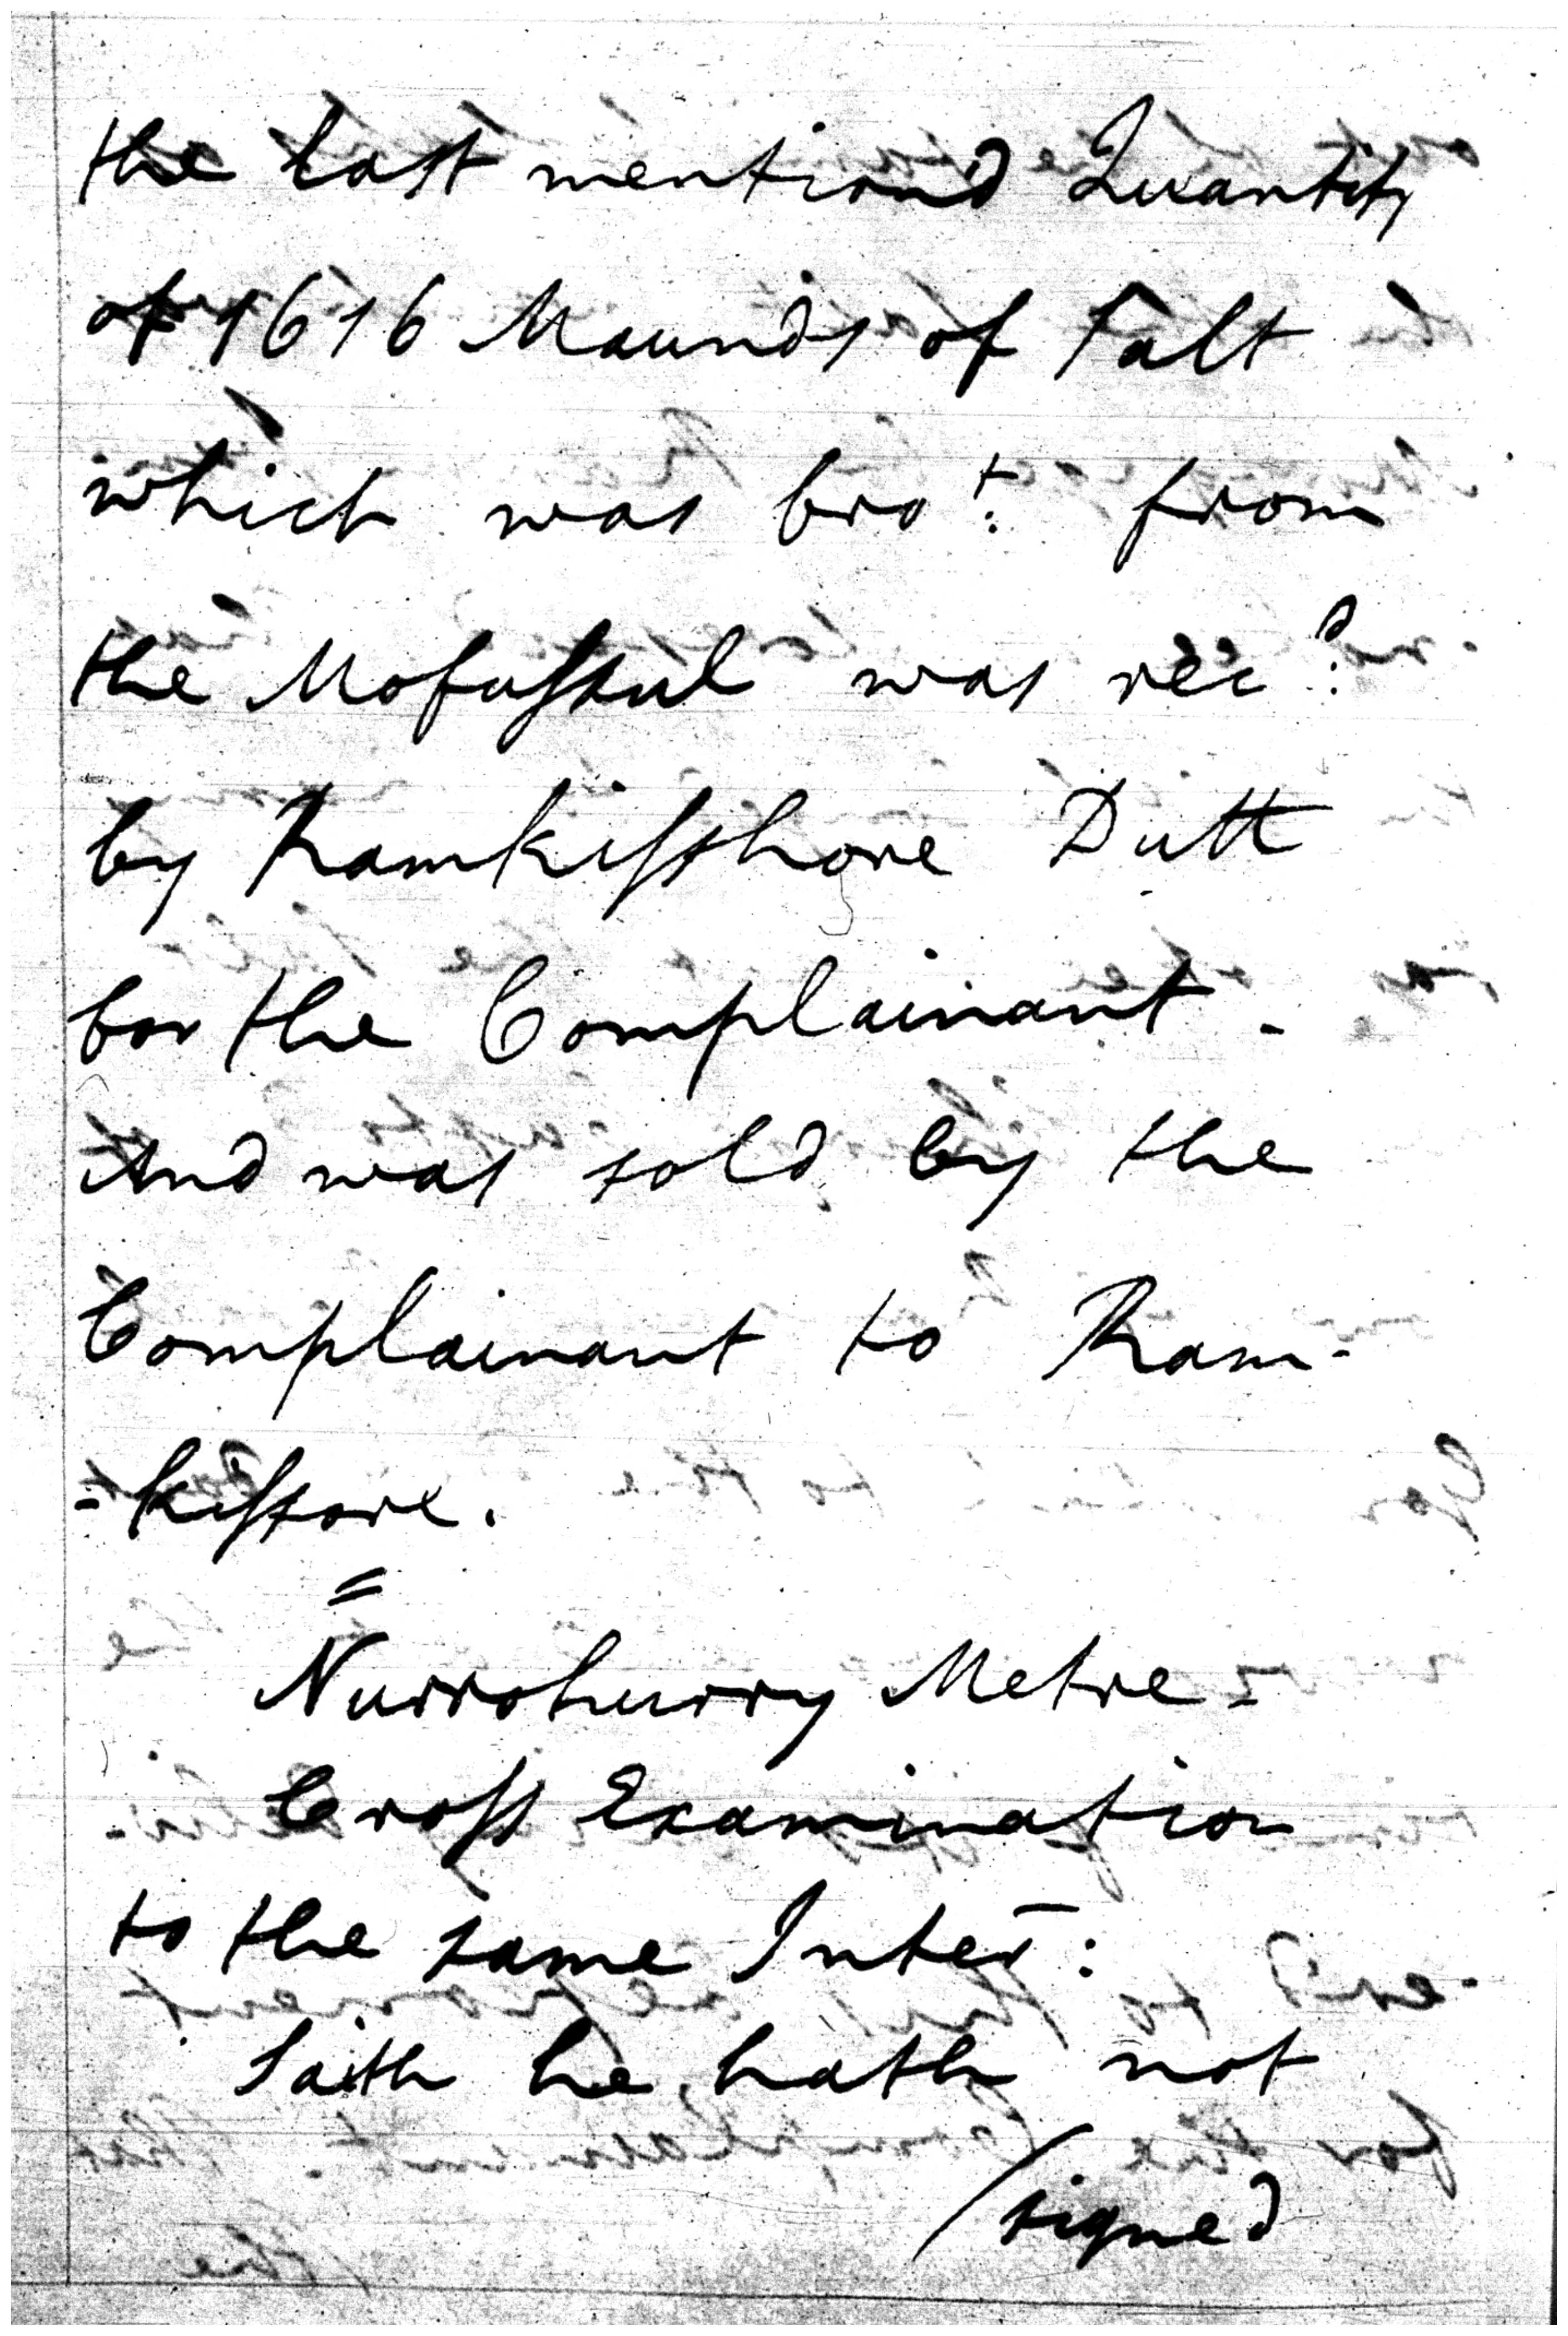 the last mention'd Quantity
of 1616 Maunds of Salt
which was bro.t from
the Mofussul was rec.d
by Ramkisshore Dutt
for the Complainant -
And was sold by the
Complainant to Ram-
-kissore.
=
Nurrohurry Metre -
Cross Examination
to the same Inter:
Saith he hath not
/signed